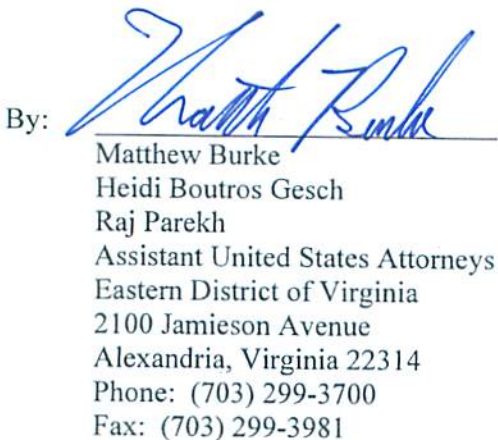 By: Matthew Burke
Matthew Burke
Heidi Boutros Gesch
Raj Parekh
Assistant United States Attorneys
Eastern District of Virginia
2100 Jamieson Avenue
Alexandria, Virginia 22314
Phone: (703) 299-3700
Fax: (703) 299-3981